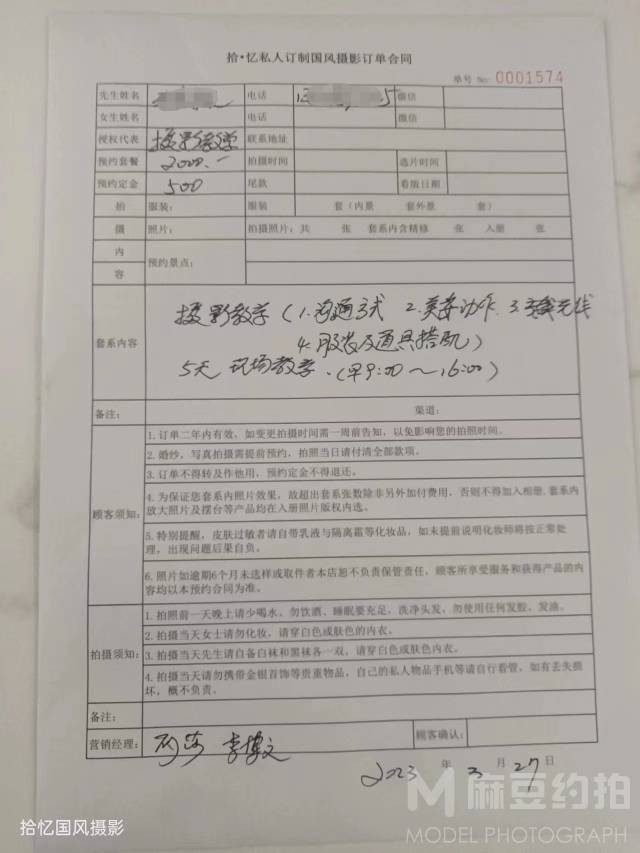 拾•忆私人订制国风摄影订单合同
单号 No. 0001574
先生姓名 电话 5 微信
女生姓名 电话 微信
授权代表 摄影教学 联系地址
预约套餐 2000.一 拍摄时间 选片时间
预约定金 500 尾款 看版日期
拍 服装: 服装 套（内景 套外景 套）
摄 照片: 拍摄照片: 共 张 套系内含精修 张 入册 张
内
容 预约景点:
套系内容
摄影教学（1.沟通方式 2.美姿动作 3.光线
4.服装及道具搭配）
5天 现场教学.（早9:00～16:00）
备注: 渠道:
顾客须知:
1.订单二年内有效，如变更拍摄时间需一周前告知，以免影响您的拍照时间。
2.婚纱，写真拍摄需提前预约，拍照当日请付清全部款项。
3.订单不得转及作他用，预约定金不得退还。
4.为保证您套系内照片效果，故超出套系张数除非另外加付费用，否则不得加入相册，套系内
放大照片及摆台等产品均在入册照片版权内选。
5.特别提醒，皮肤过敏者请自带乳液与隔离霜等化妆品，如未提前说明化妆师将按正常处
理，出现问题后果自负。
6.照片如逾期6个月未选样或取件者本店恕不负责保管责任，顾客所享受服务和获得产品的内
容均以本预约合同为准。
拍摄须知:
1.拍照前一天晚上请少喝水，勿饮酒、睡眠要充足，洗净头发，勿使用任何发胶、发油。
2.拍摄当天女士请勿化妆，请穿白色或肤色的内衣。
3.拍摄当天先生请自备白袜和黑袜各一双，请穿白色或肤色内衣。
4.拍摄当天请勿携带金银首饰等贵重物品，自己的私人物品手机等请自行看管，如有丢失损
坏，概不负责。
备注:
营销经理: 阿莎 李博文 顾客确认:
2023 年 3 月 27 日
拾忆国风摄影
麻豆约拍
MODEL PHOTOGRAPH